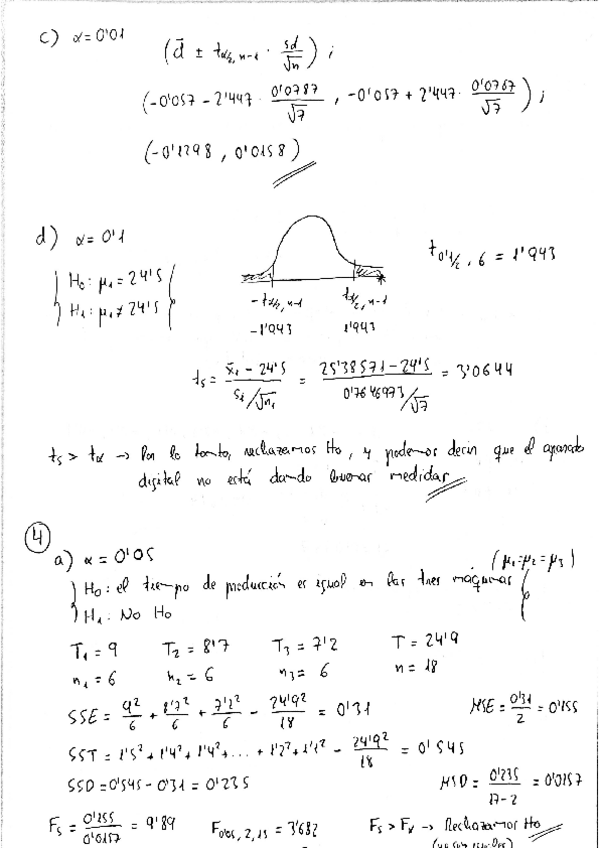 c) α = 0'01 (d̄ ± t α/2, n-1 · sd/√n) ;
(-0'057 - 2'447 · 0'0787/√7 , -0'057 + 2'447 · 0'0767/√7) ;
(-0'1298 , 0'0158)
d) α = 0'1
H₀ : μ₁ = 24'5
H₁ : μ₁ ≠ 24'5
t 0'1/2, 6 = 1'943
-t α/2, n-1 t α/2, n-1
-1'943 1'943
ts = (x̄₁ - 24'5)/(s₁/√n₁) = (25'38571 - 24'5)/(0'7646973/√7) = 3'0644
ts > tα → Por lo tanto, rechazamos H₀, y podemos decir que el aparato
digital no está dando buenas medidas
4
a) α = 0'05 (μ₁=μ₂=μ₃)
H₀ : el tiempo de producción es igual en las tres máquinas
H₁ : No H₀
T₁ = 9 T₂ = 8'7 T₃ = 7'2 T = 24'9
n₁ = 6 n₂ = 6 n₃ = 6 n = 18
SSE = 9²/6 + 8'7²/6 + 7'2²/6 - 24'9²/18 = 0'31 MSE = 0'31/2 = 0'155
SST = 1'5² + 1'4² + 1'4² + ... + 1'2² + 1'1² - 24'9²/18 = 0'545
SSD = 0'545 - 0'31 = 0'235 MSD = 0'235/17-2 = 0'0157
Fs = 0'155/0'0157 = 9'89 F0'05, 2, 15 = 3'682 Fs > Fα → Rechazamos H₀